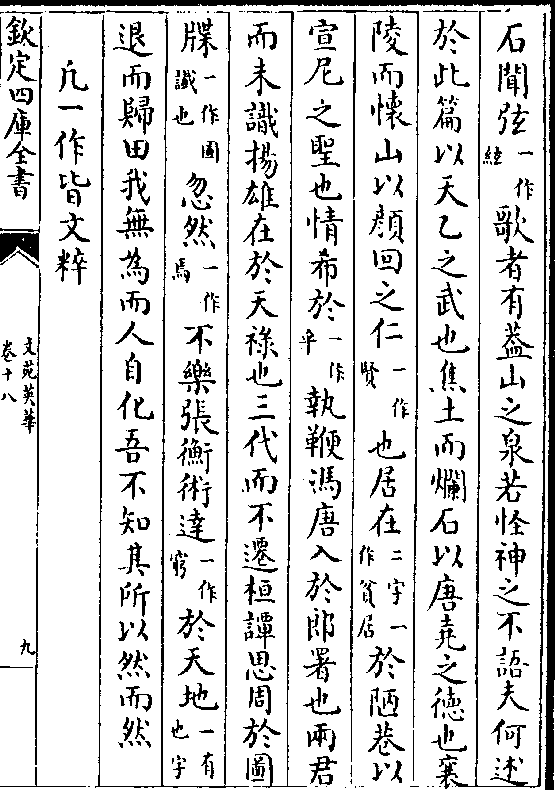 石聞弦一作絃歌者有葢山之泉若怪神之不語夫何述
於此篇以天乙之武也焦土而爛石以唐堯之德也襄
陵而懷山以顔回之仁一作賢也居在二字一作貧居於陋巷以
宣尼之聖也情希於一作乎執鞭馮唐入於郎署也兩君
而未識揚雄在於天祿也三代而不遷桓譚思周於圖
牒一作圖識也忽然一作焉不樂張衡術達一作窮於天地一有也字
退而歸田我無為而人自化吾不知其所以然而然
凡一作皆文粹
欽定四庫全書
文苑英華
卷十八
九